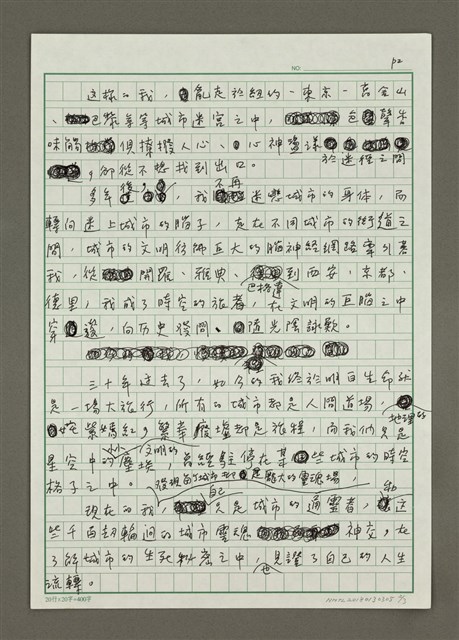 NO: P2
这樣的我，亂走於紐約、東京、舊金山
、巴黎等等城市迷宮之中，色聲味
觸俱撩撥人心、心神盪漾於迷徑之間
，卻從不想找到出口。
多年後，我不再迷戀城市的身体，而
轉向迷上城市的腦子，走在不同城市的街道之
間，城市的文明彷彿巨大的腦神經網路牽引著
我，從開羅、雅典、巴格達到西安、京都、
德里，我成了時空的旅者，在文明的巨腦之中
穿透，向历史發問、隨光陰詠歎。
三十年过去了，如今的我終於明白生命就
是一場大旅行，所有的城市都是人間道場，
姹紫嫣紅，繁華廢墟都是旅程，向我們只是
星空中的小小塵埃，曾經駐停在某些城市的時空
格子之中。
文明的 地理的
發現每個城市都是龐大的靈魂場，
現在的我，自己只是城市的通靈者，和这
些千百劫輪迴的城市靈魂神交，在
了解城市的生死軌跡之中，也見證了自己的人生
流轉。
20行×20字=400字